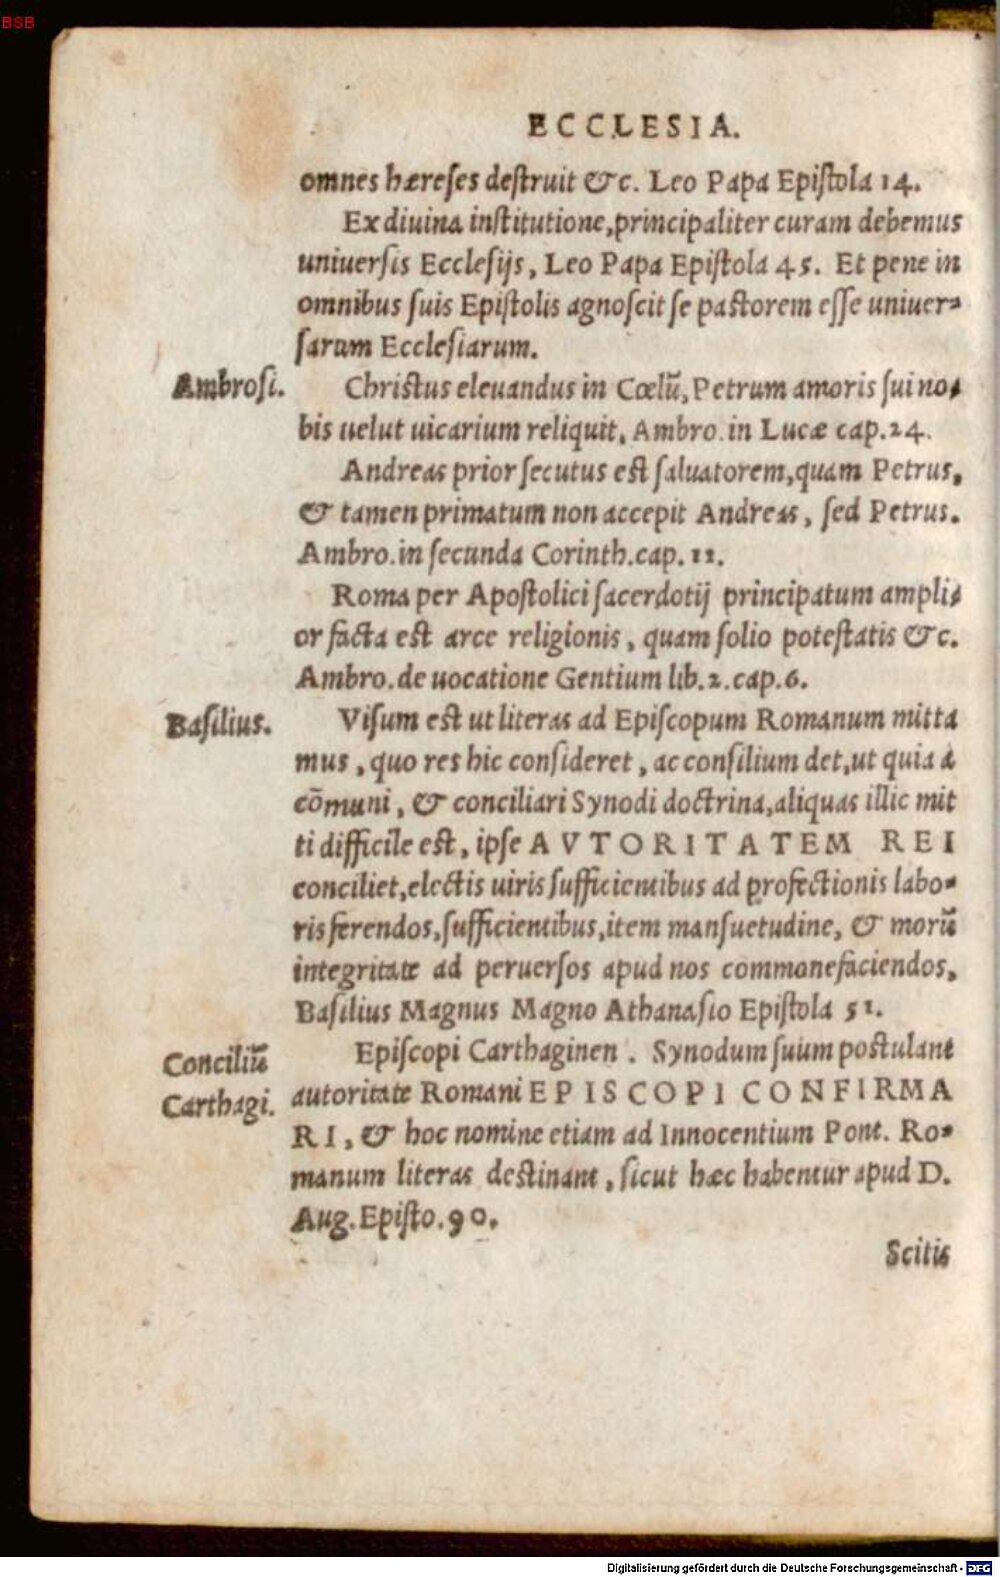 BSB
ECCLESIA.
omnes hæreses destruit &c. Leo Papa Epistola 14.
Ex diuina institutione, principaliter curam debemus
uniuersis Ecclesijs, Leo Papa Epistola 45. Et pene in
omnibus suis Epistolis agnoscit se pastorem esse uniuer-
sarum Ecclesiarum.
Ambrosi. Christus eleuandus in Cœlū, Petrum amoris sui no-
bis uelut uicarium reliquit, Ambro. in Lucæ cap. 24.
Andreas prior secutus est saluatorem, quam Petrus,
& tamen primatum non accepit Andreas, sed Petrus.
Ambro. in secunda Corinth. cap. 12.
Roma per Apostolici sacerdotij principatum ampli-
or facta est arce religionis, quam solio potestatis &c.
Ambro. de uocatione Gentium lib. 2. cap. 6.
Basilius. Visum est ut literas ad Episcopum Romanum mitta
mus, quo res hic consideret, ac consilium det, ut quia à
cōmuni, & conciliari Synodi doctrina, aliquas illic mit
ti difficile est, ipse AVTORITATEM REI
conciliet, electis uiris sufficientibus ad profectionis labo-
ris ferendos, sufficientibus, item mansuetudine, & morū
integritate ad peruersos apud nos commonefaciendos,
Basilius Magnus Magno Athanasio Epistola 51.
Conciliū Episcopi Carthaginen. Synodum suum postulant
Carthagi. autoritate Romani EPISCOPI CONFIRMA
RI, & hoc nomine etiam ad Innocentium Pont. Ro-
manum literas destinant, sicut hæc habentur apud D.
Aug. Episto. 90.
Scitis
Digitalisierung gefördert durch die Deutsche Forschungsgemeinschaft - DFG